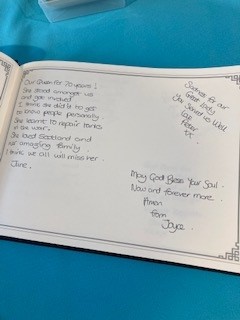 Our Queen for 70 years!
She stood amongst us
and got involved
I think she did it to get
to know people personally.
She learnt to repair tanks
in the war.
She loved Scotland and
our amazing family.
I think we all will miss her.
June.
Sadness for our
Great Lady
You Served Us Well
Peter
May God Bless Your Soul.
Now and forever more.
Amen
from
Joyce.